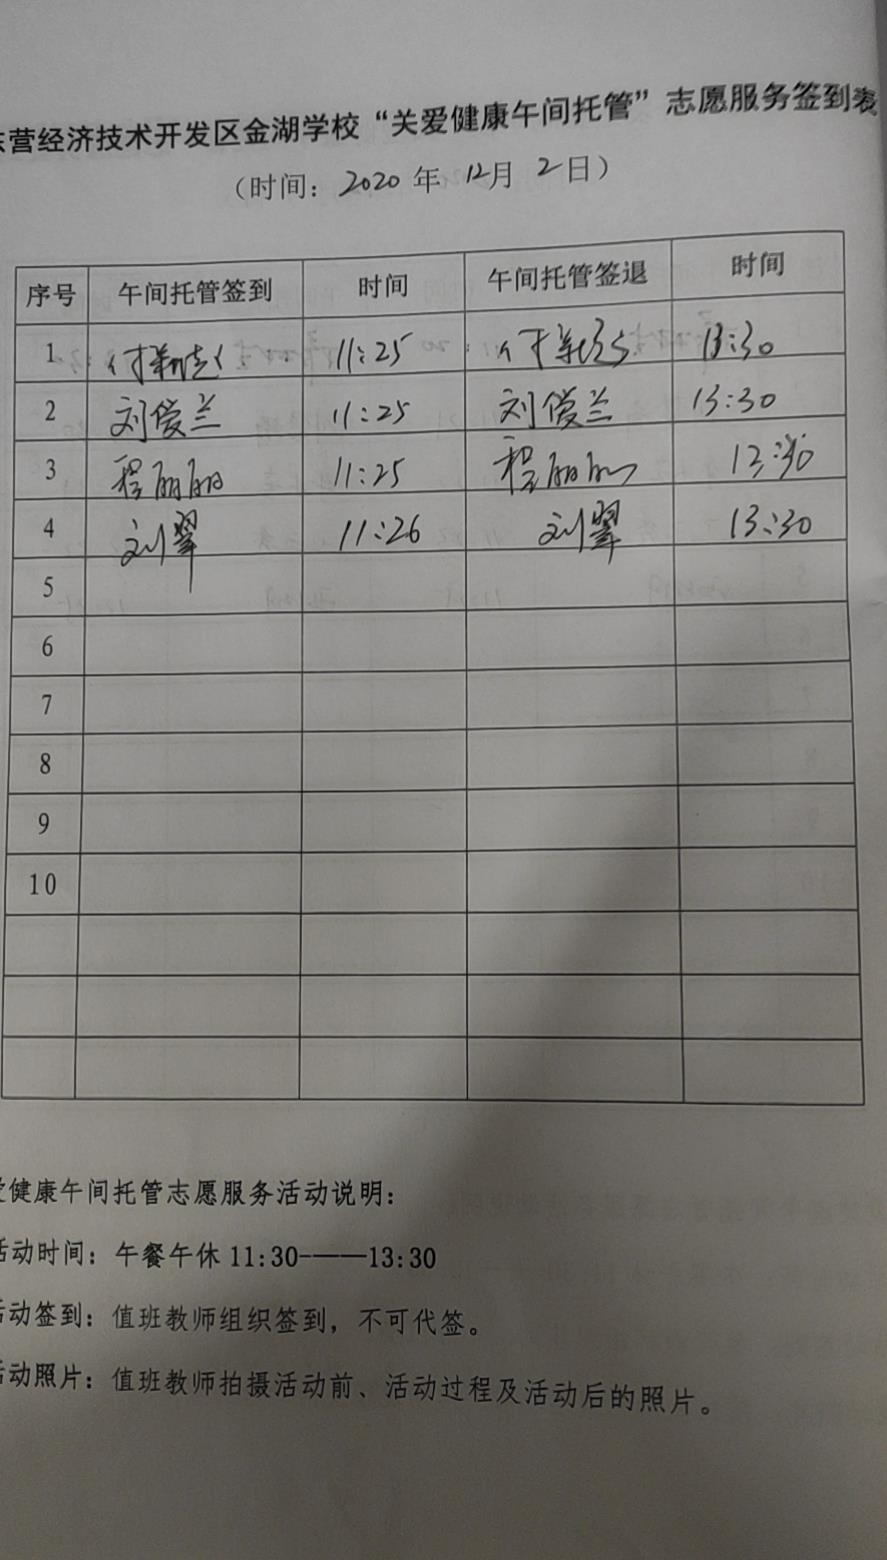 东营经济技术开发区金湖学校“关爱健康午间托管”志愿服务签到表
（时间：2020 年 12月 2日）
序号 午间托管签到 时间 午间托管签退 时间
1 付 11:25 付 13:30
2 刘俊兰 11:25 刘俊兰 13:30
3 程丽丽 11:25 程丽丽 13:30
4 刘翠 11:26 刘翠 13:30
5
6
7
8
9
10
爱健康午间托管志愿服务活动说明：
活动时间：午餐午休 11:30-——13:30
活动签到：值班教师组织签到，不可代签。
活动照片：值班教师拍摄活动前、活动过程及活动后的照片。